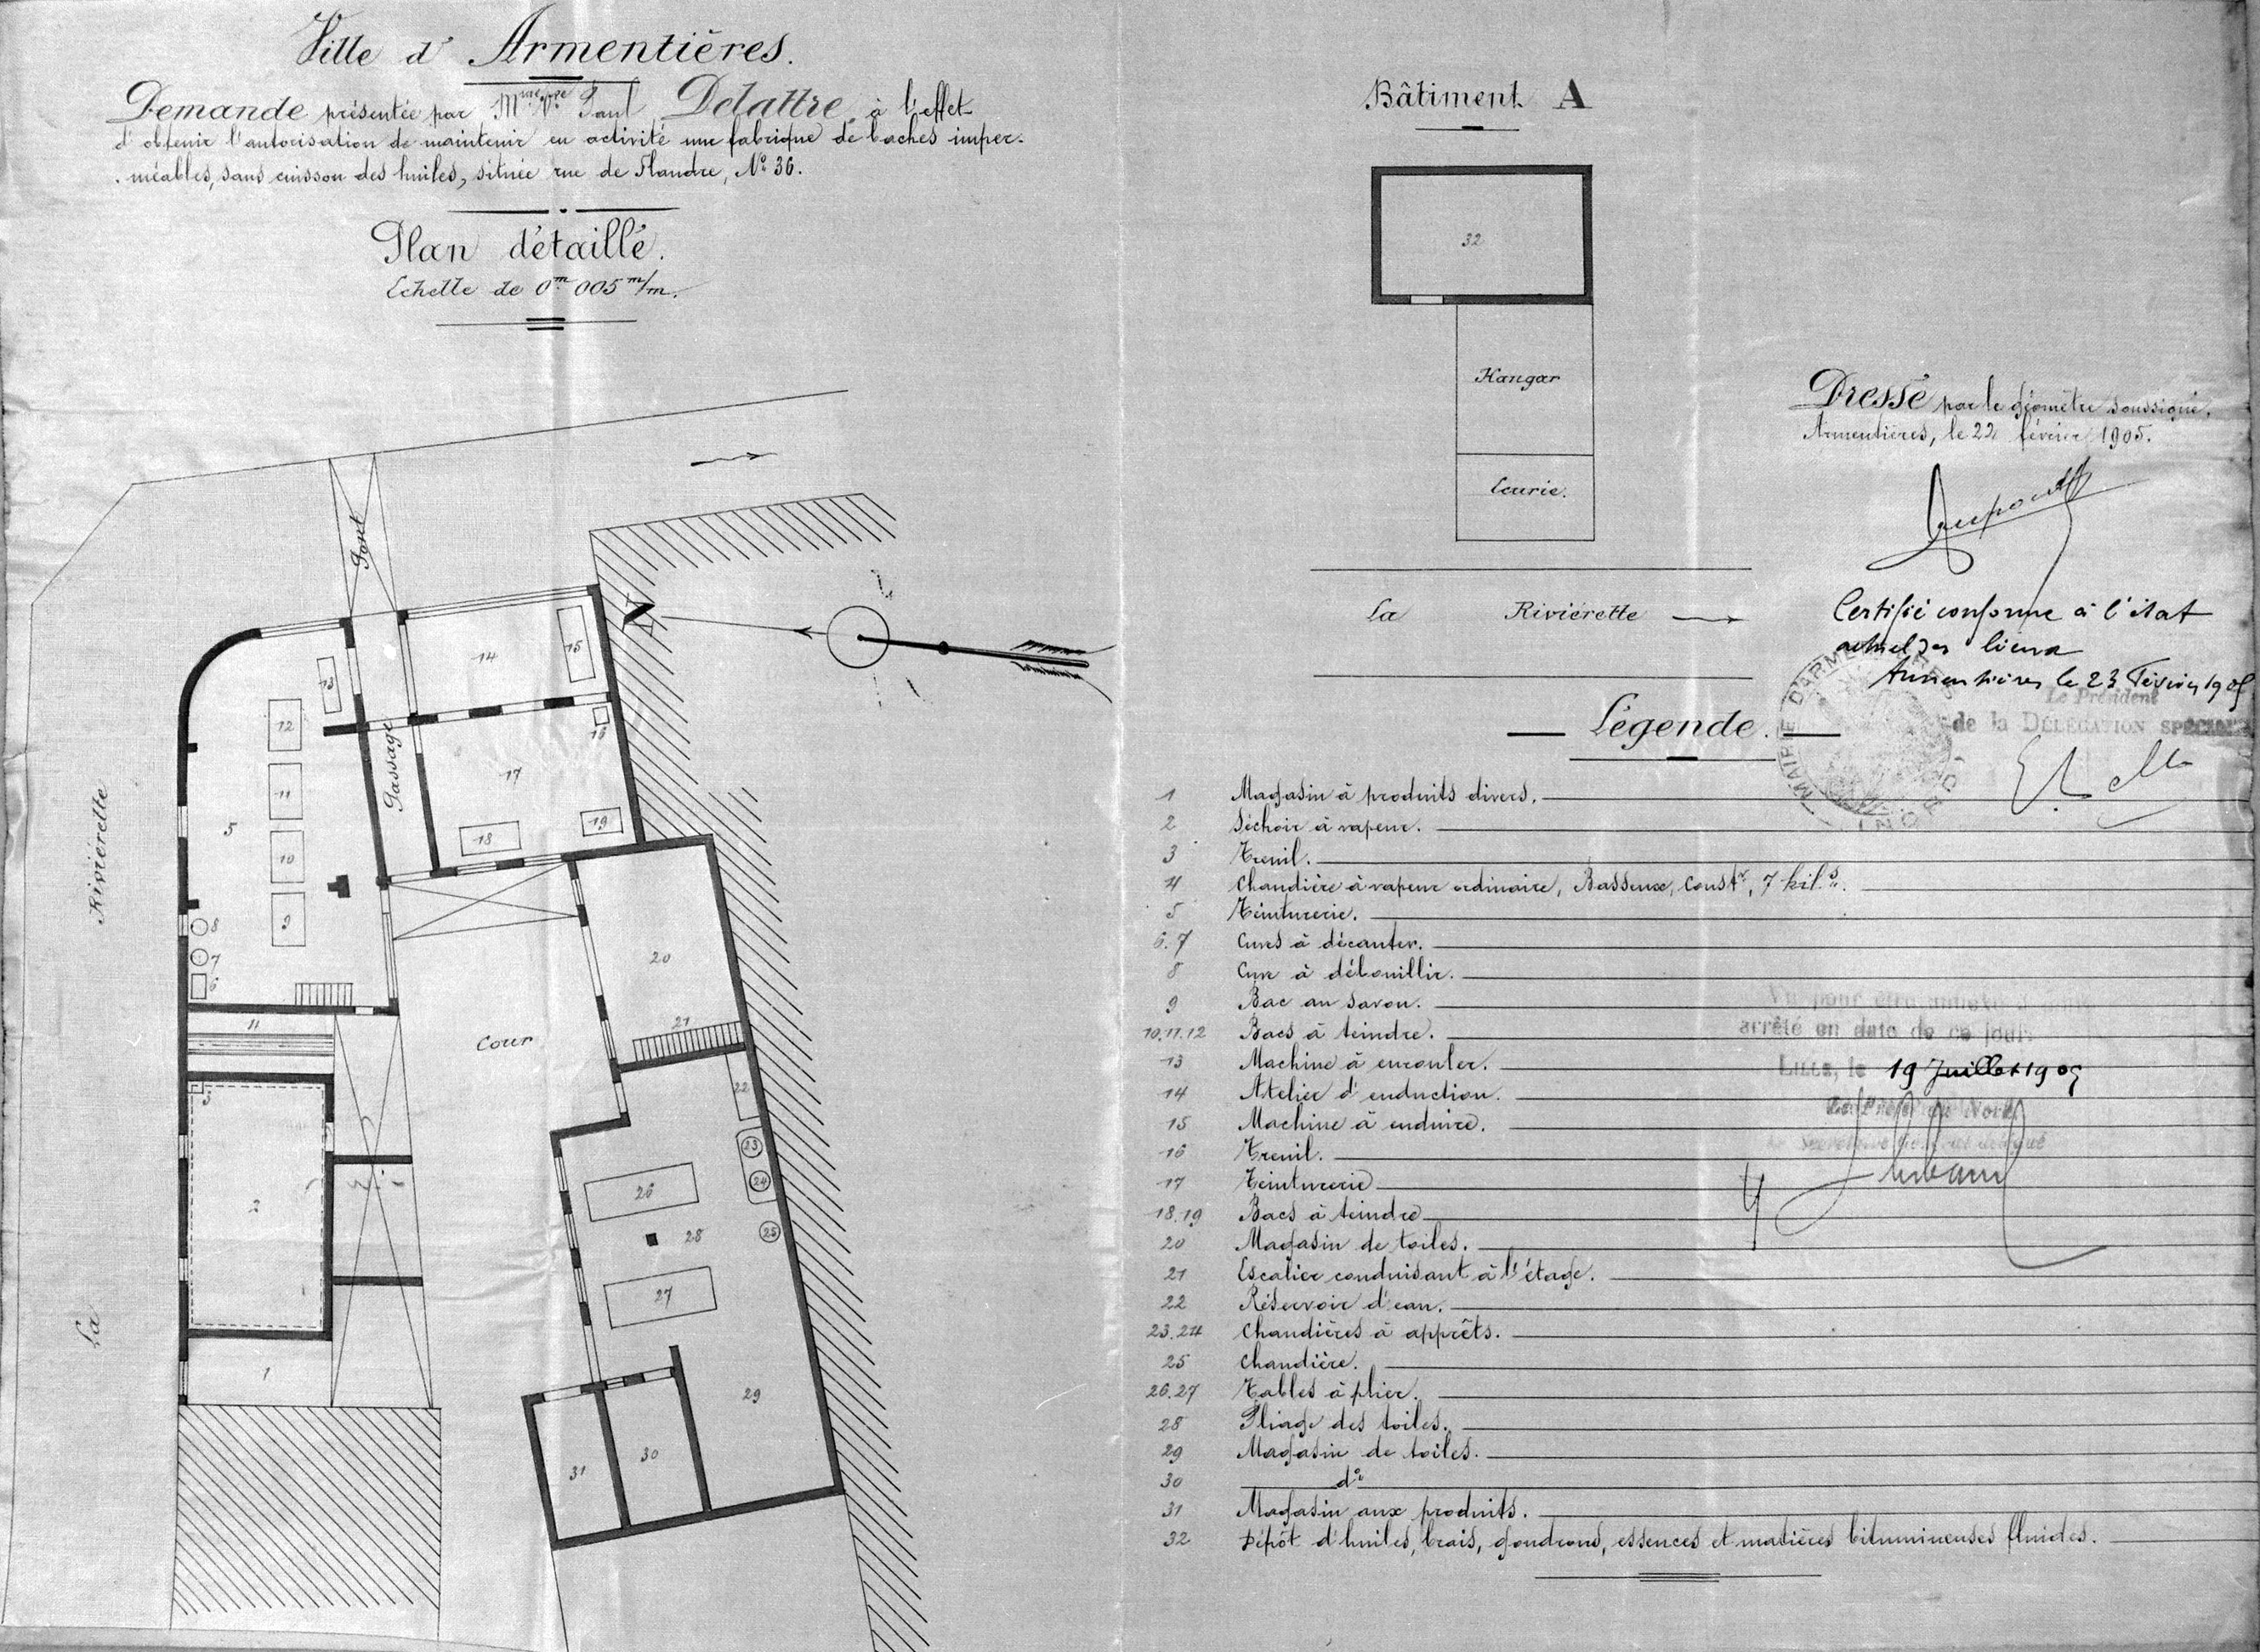 Ville d'Armentières.
Demande présentée par Mme Vve Paul Delattre, à l'effet
d'obtenir l'autorisation de maintenir en activité une fabrique de baches imper-
méables, sans cuisson des huiles, située rue de Flandre, N° 36.
Plan détaillé.
Echelle de 0m 005 m/m.
Pont
La Riviérette
Passage
Cour
1
2
3
4
5
6
7
8
9
10
11
12
13
14
15
16
17
18
19
20
21
22
23
24
25
26
27
28
29
30
31
Bâtiment A
32
Hangar
Ecurie.
La Riviérette
Dressé par le géomètre soussigné.
Armentières, le 22 février 1905.
Certifié conforme à l'état
actuel des lieux
Armentières le 23 Février 1905
Le Président
de la DÉLÉGATION SPÉCIALE
MAIRIE D'ARMENTIÈRES
Légende.
1 Magasin à produits divers.
2 Séchoir à vapeur.
3 Treuil.
4 Chaudière à vapeur ordinaire, Basseux, constr, 7 kil.s
5 Teinturerie.
6.7 Cuves à décanter.
8 Cuve à débouillir.
9 Bac au savon.
10.11.12 Bacs à teindre.
13 Machine à enrouler.
14 Atelier d'enduction.
15 Machine à enduire.
16 Treuil.
17 Teinturerie
18.19 Bacs à teindre
20 Magasin de toiles.
21 Escalier conduisant à l'étage.
22 Réservoir d'eau.
23.24 Chaudières à apprêts.
25 Chaudière.
26.27 Tables à plier.
28 Pliage des toiles.
29 Magasin de toiles.
30 d°
31 Magasin aux produits.
32 Dépôt d'huiles, brais, goudrons, essences et matières bitumineuses fluides.
Vu pour être annexé à
arrêté en date de ce jour.
LILLE, le 19 Juillet 1905
Le Préfet du Nord